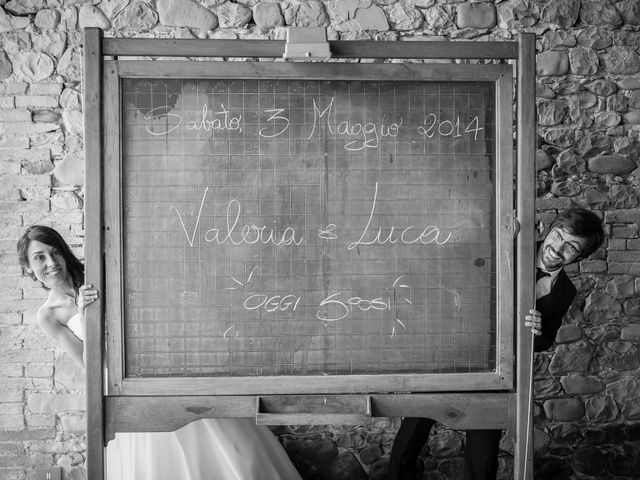 Sabato, 3 Maggio 2014
Valeria & Luca
OGGI SPOSI